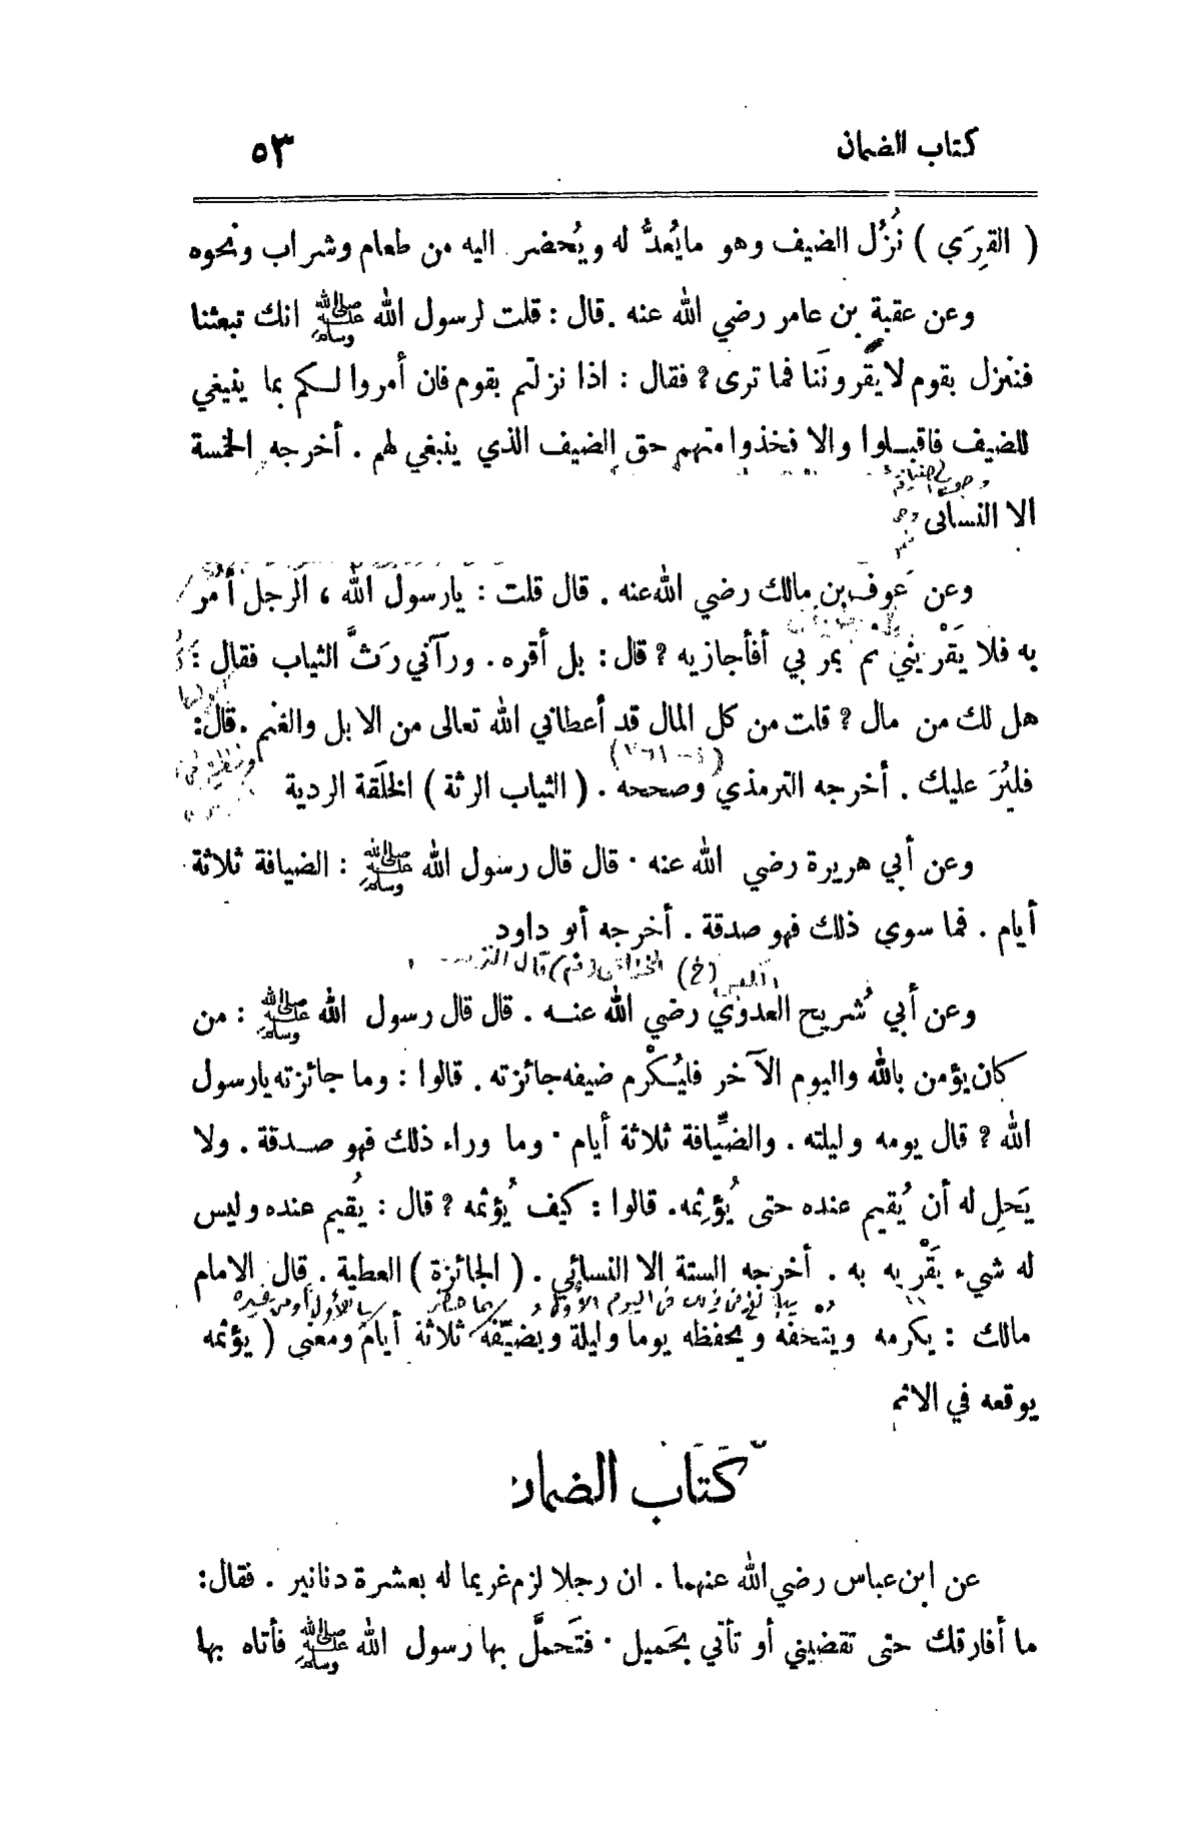 كتاب الضمان ٥٣
( القِرَي ) نُزُل الضيف وهو مايُعدُّ له ويُحضر اليه من طعام وشراب ونحوه
وعن عقبة بن عامر رضي الله عنه . قال : قلت لرسول الله ﷺ انك تبعثنا
فننزل بقوم لايقرونَنا فما ترى ? فقال : اذا نزلتم بقوم فان أمروا لكم بما ينبغي
للضيف فاقبلوا والا فخذوا منهم حق الضيف الذي ينبغي لهم . أخرجه الخمسة
الا النسائي
وعن عَوف بن مالك رضي الله عنه . قال قلت : يارسول الله ، الرجل أمُر
به فلا يَقْريني ثم يمر بي أفأجازيه ? قال : بل أقره . ورآني رَثَّ الثياب فقال :
هل لك من مال ? قلت من كل المال قد أعطاني الله تعالى من الابل والغنم . قال :
فليُرَ عليك . أخرجه الترمذي وصححه . ( الثياب الرثة ) الخلَقة الردية
وعن أبي هريرة رضي الله عنه . قال قال رسول الله ﷺ : الضيافة ثلاثة
أيام . فما سوى ذلك فهو صدقة . أخرجه أبو داود
وعن أبي شُريح العدوي رضي الله عنه . قال قال رسول الله ﷺ : من
كان يؤمن بالله واليوم الآخر فليُكْرم ضيفه جائزته . قالوا : وما جائزته يارسول
الله ? قال يومه وليلته . والضِّيافة ثلاثة أيام . وما وراء ذلك فهو صدقة . ولا
يَحِل له أن يُقيم عنده حتى يُؤثِمه . قالوا : كيف يُؤثمه ? قال : يُقيم عنده وليس
له شيء يَقْريه به . أخرجه الستة الا النسائي . ( الجائزة ) العطية . قال الامام
مالك : يكرمه ويتحفه ويحفظه يوما وليلة ويضيّفه ثلاثة أيام ومعنى ( يؤثمه
يوقعه في الاثم
كتاب الضمان
عن ابن عباس رضي الله عنهما . ان رجلا لزم غريما له بعشرة دنانير . فقال :
ما أفارقك حتى تقضيني أو تأتي بحَميل . فتَحملَّ بها رسول الله ﷺ فأتاه بها